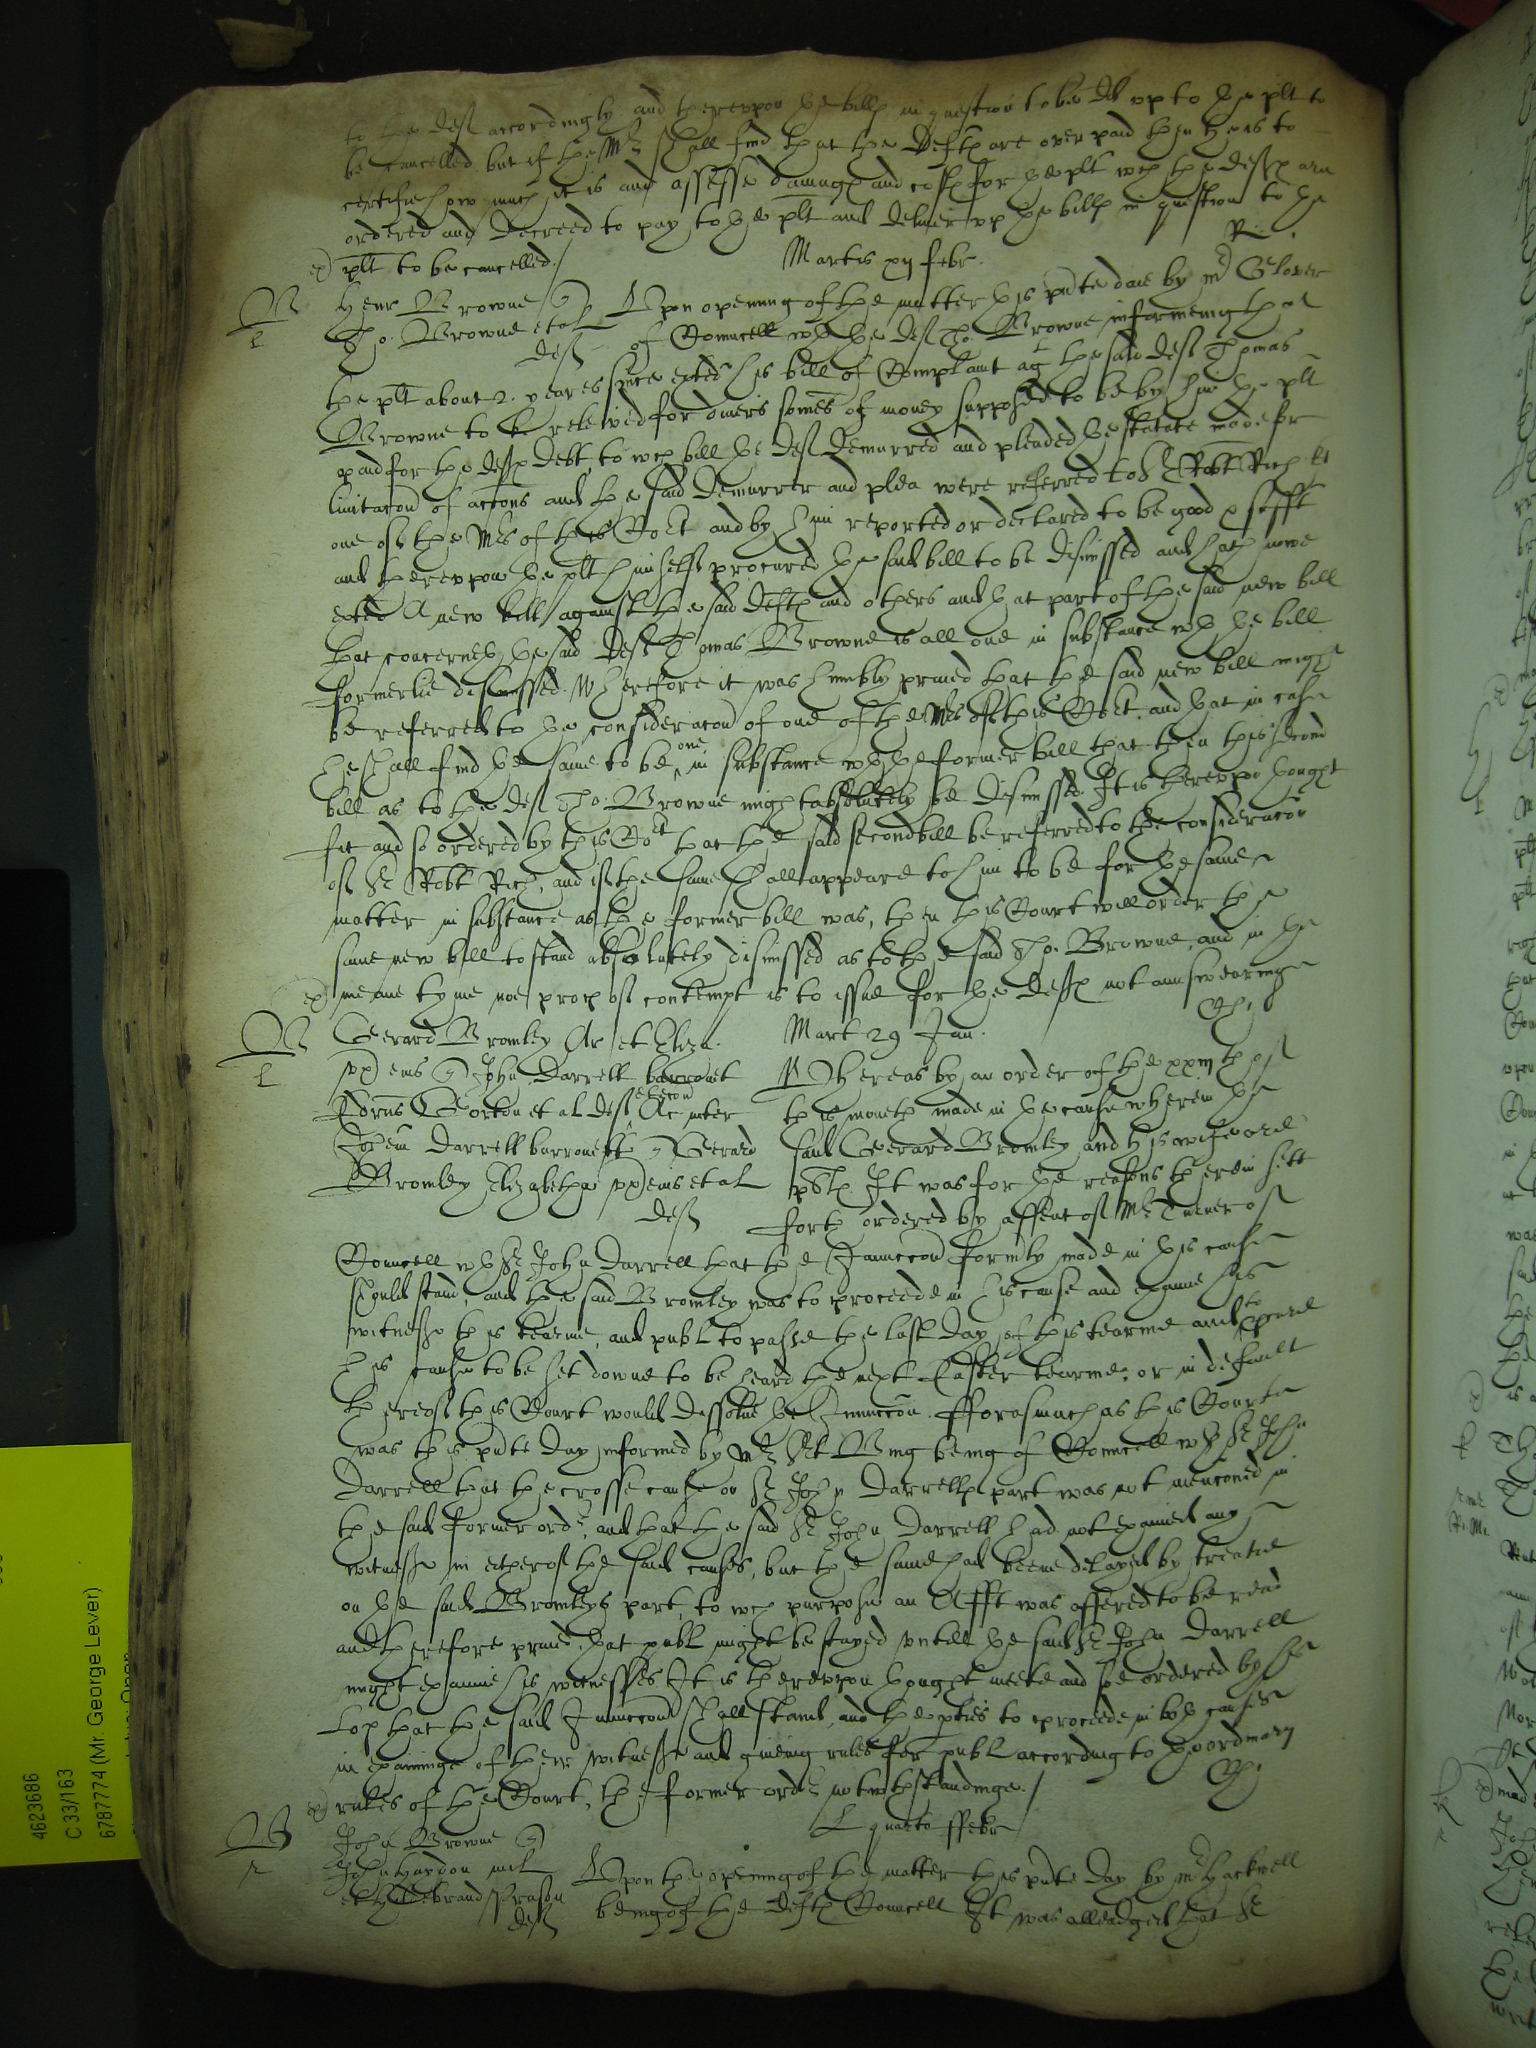 to the deft accordingly and thereupon the bills in question to be dd up to the plt to
be cancelled. but if the Mr shall find that the defts are over paid then he is to
certifie how much it is and assesse damages and costs for the plt wch the defts are
ordered and decreed to pay to the plt and deliver up the bills in question to the
plt to be cancelled./
R
Martis xij Febr.
B
Henr Browne plt
Tho. Browne et al
deft
Upon opening of the matter this pnte daie by Mr Glover
of Councell wth the deft Tho. Browne informeing that
the plt about 2. yeares since exted his bill of Complaint agt the said deft Thomas
Browne to be releived for divers somes of money supposed to be by him the plt
paid for the defts debt, to wch bill the deft demurred and pleaded the statute made for
limitacon of accons and the said demurrer and plea were referred to Sr Robt Rich kt
one of the Mrs of this Cort and by him reported or declared to be good & sufft
and thereupon the plt himselfe procured the said bill to be dismissed and hath nowe
exted a new bill against the said defts and others and that part of the said new bill
that concerneth the said deft Thomas Browne is all one in substance wth the bill
formerlie dismissed. Wherefore it was humbly praied that the said new bill might
be referred to the consideracon of one of the Mrs of this Cort. and that in case
he shall find the same to be one in substance wth the former bill that then this second
bill as to the deft Tho. Browne might absolutely be dismissed. It is thereupon thought
fit and so ordered by this Cort that the said second bill be referred to the consideracon
of Sr Robt Rich, and if the same shall appeare to him to be for the same
matter in substance as the former bill was, then this Court will order the
same new bill to stand absolutely dismissed as to the said Tho. Browne, and in the
meane tyme noe proces of contempt is to issue for the defts not answearing
B
Gerard Bromley Ar et Eliza.
ux eius plt John Darrell barronet
Gorton et al deft Ac inter
Johem Darrell barronett plt Gerard
Bromley Elizabetha ux eius et al
deft
Mart 29 Jan.
Whereas by an order of the xxiijth of
this moneth made in the cause wherein the
said Gerard Bromley and his wife are
plts It was for the reasons therein sett
forth ordered by assent of Mr Turner of
Councell wth Sr John Darrell that the Iniunccon formly made in this cause
should stand, and the said Bromley was to proceede in his cause and examine his
witnesses this tearme, and publ to passe the last day of this tearme and to procure
his cause to be set downe to be heard the next Easter tearme: or in default
thereof this Court would dissolve the Iniunccon. Fforasmuch as this Court
was this pnte day informed by Mr St Bing being of Councell wth Sr John
Darrell that the crosse cause on Sr John Darrells part was not menconed in
the said former order, and that the said Sr John Darrell had not examined any
witnesses in either of the said causes, but the same had beene delayed by treatie
on the said Bromleys part, to wch purpose an Afft was offered to be read
and therefore praied that publ might be stayed untill the said Sr John Darrell
might examine his witnesses It is thereupon thought meete and soe ordered by his
Lop that the said Iniunccon shall stand, and the pties to proceede in both causes
in examininge of their witnesses and giveing rules for publ according to the ordinary
rules of the Court, the former order notwthstandinge./
B
John Browne plt
John Hardon mil
et Hildebrand
deft
L quarto Ffebr
Upon the opening of the matter this pnte day by Mr Hackwell
being of the defts Councell It was alleadged that Sr
4623686
C 33/163
67877774 (Mr. George Lever)